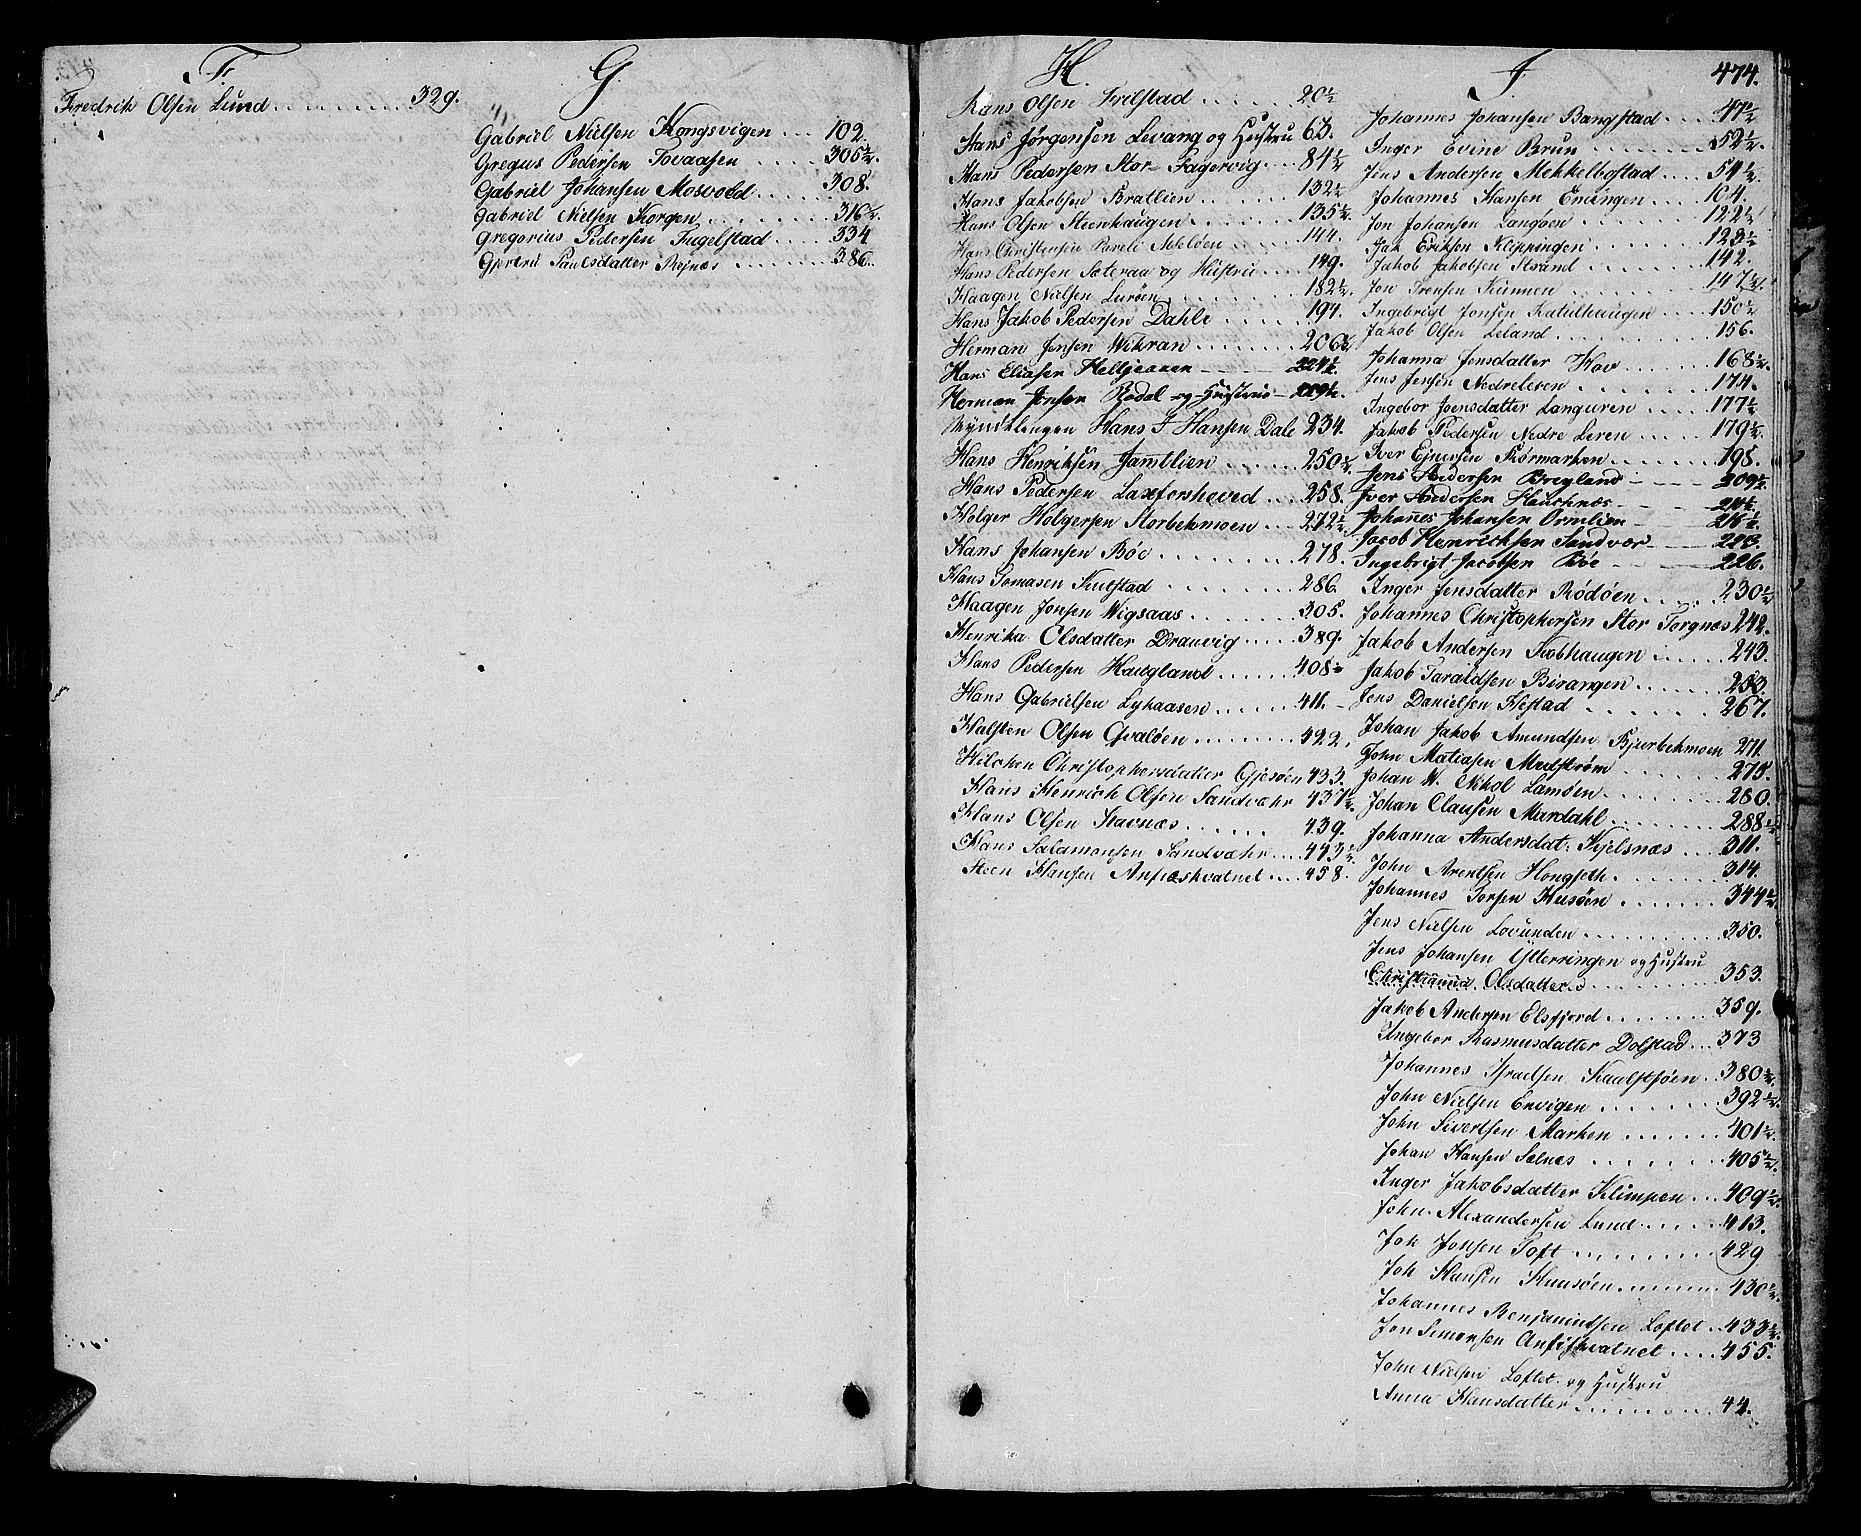 F.
Fredrik Olsen Lund ........... 329.
G.
Gabriel Nielsen Kongsvigen ... 102.
Gregus Pedersen Tovaasen ..... 305½.
Gabriel Johansen Mosvold ...... 308.
Gabriel Nielsen Korgen ........ 316½.
Gregorius Pedersen Fugelstad .... 334
Gjertru Paulsdatter Rejnæs ....... 386.
H.
Hans Olsen Frilstad ...... 20½
Hans Jørgensen Levang og Hustru 63.
Hans Pedersen Stor-Fagervig ... 84½
Hans Jakobsen Bratlien ....... 132½
Hans Olsen Steenhaugen ...... 135½
Hans Christensen Meløen ... 144.
Hans Pedersen Sæteraa og Hustru ... 149.
Haagen Nielsen Lurøen ........ 182½
Hans Jakob Pedersen Dahle ...... 194.
Herman Jensen Wikran ....... 206½
Hans Eliasen 224½
Herman Jensen Rødal og Hustrue 229½
Myndtlingen Hans J Hansen Dale 234.
Hans Henriksen Jamtlien ...... 250½
Hans Pedersen Laxforshoved ... 258.
Holger Holgersen Storbekmoen ... 272½
Hans Johansen Bøe ......... 278.
Hans Tomasen Kulstad ....... 286
Haagen Jonsen Wigsaas ....... 305.
Henrika Olsdatter Drauvig ..... 389.
Hans Pedersen Haugland ...... 408½
Hans Gabrielsen Lykaasen ...... 411.
Halsten Olsen Gvaløen ......... 422.
Hilchen Christophersdatter Gjesøen 433.
Hans Henrich Olsen Sandvæhr 437½
Hans Olsen Stavnæs ...... 439.
Hans Salamonsen Sandvæhr ... 443½
Steen Hansen ... 458.
J
474.
Johannes Johansen Bangstad ... 47½
Inger Evine Brun ........ 52½
Jens Andersen Mekkelbostad .... 54½
Johannes Hansen Enøingen .... 104.
Jon Johansen Langøen ........ 122½
Jak Eriksen Klippingen ....... 123½
Jakob Jakobsen Strand ........ 142.
Jon Kunnen ........ 147½
Ingebrigt Jonsen Katulhaugen .... 150½
Jakob Olsen Leland ........ 156.
Johanna Jensdatter Hov ...... 168½
Jens Jensen Nedreleren ........ 174.
Ingebor Joensdatter Languren .... 177½
Jakob Pedersen Nedre Leren .... 179½
Iver Ejnersen Kørmarken ....... 198.
Jens Andersen Breyland 209½
Iver Andersen 214½
Johannes Johansen Ormlien 216½
Jacob Henricksen Sandvær 223.
Ingebrigt Jacobsen Bøe 226.
Inger Jensdatter Rødøen ..... 230½
Johannes Christophersen Stor Torgnæs 242.
Jakob Andersen Kobhaugen ..... 243.
Jakob Taraldsen Birangen ...... 253.
Jens Danielsen Hestad ....... 267.
Johan Jakob Amundsen Bjurbekmoen 271.
John Matiasen Medstrøm ...... 275.
Johan W. Nikol Lamøen ....... 280.
Johan Clausen Mardahl ....... 288½
Johanna Andersdat. Kjelsnæs ... 311.
John Arentsen Hongseth ....... 314.
Johannes Torsen Husøen ....... 344½
Jens Nielsen Lovunden ........ 350.
Jens Johansen Ytterringen og Hustru
Christianna Olsdatter ......... 353.
Jakob Andersen Elsfjord ....... 359.
Ingebor Rasmusdatter Dolstad ... 373
Johannes Israelsen ... 380½
John Nielsen Envigen ........ 392½
John Sivertsen Marken ....... 401½
Johan Hansen Selnæs ....... 405½
Inger Jakobsdatter Klimpen ... 409½
John Alexandersen Lund ...... 413.
Joh Jonsen Toft ......... 429
Joh Hansen Huusøen ......... 430½
Johannes Benjaminsen Loftet .. 433½
Jon Simonsen ..... 455.
John Nielsen Loftet og Hustru
Anna Hansdatter ......... 44.